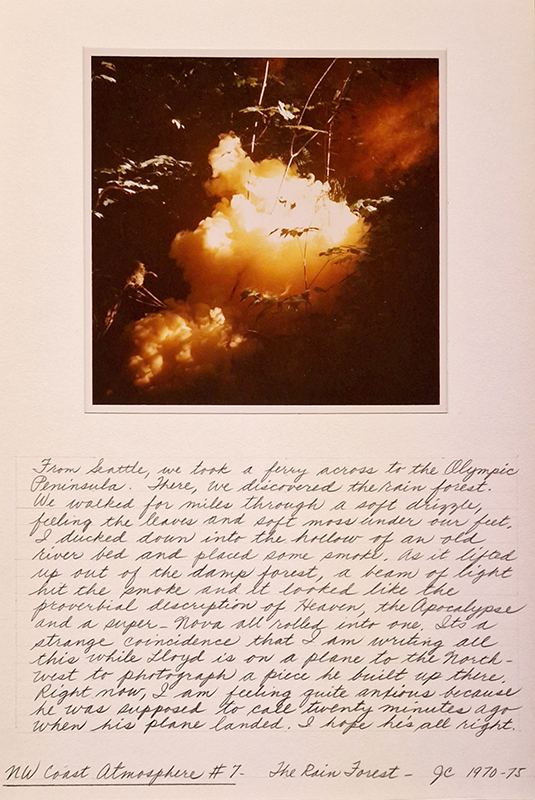 From Seattle, we took a ferry across to the Olympic
Peninsula. There, we discovered the rain forest.
We walked for miles through a soft drizzle,
feeling the leaves and soft moss under our feet.
I ducked down into the hollow of an old
river bed and placed some smoke. As it lifted
up out of the damp forest, a beam of light
hit the smoke and it looked like the
proverbial description of Heaven, the Apocalypse
and a super-Nova all rolled into one. Its a
strange coincidence that I am writing all
this while Lloyd is on a plane to the North-
west to photograph a piece he built up there.
Right now, I am feeling quite anxious because
he was supposed to call twenty minutes ago
when his plane landed. I hope he's all right.
NW Coast Atmosphere #7- The Rain Forest - JC 1970-75